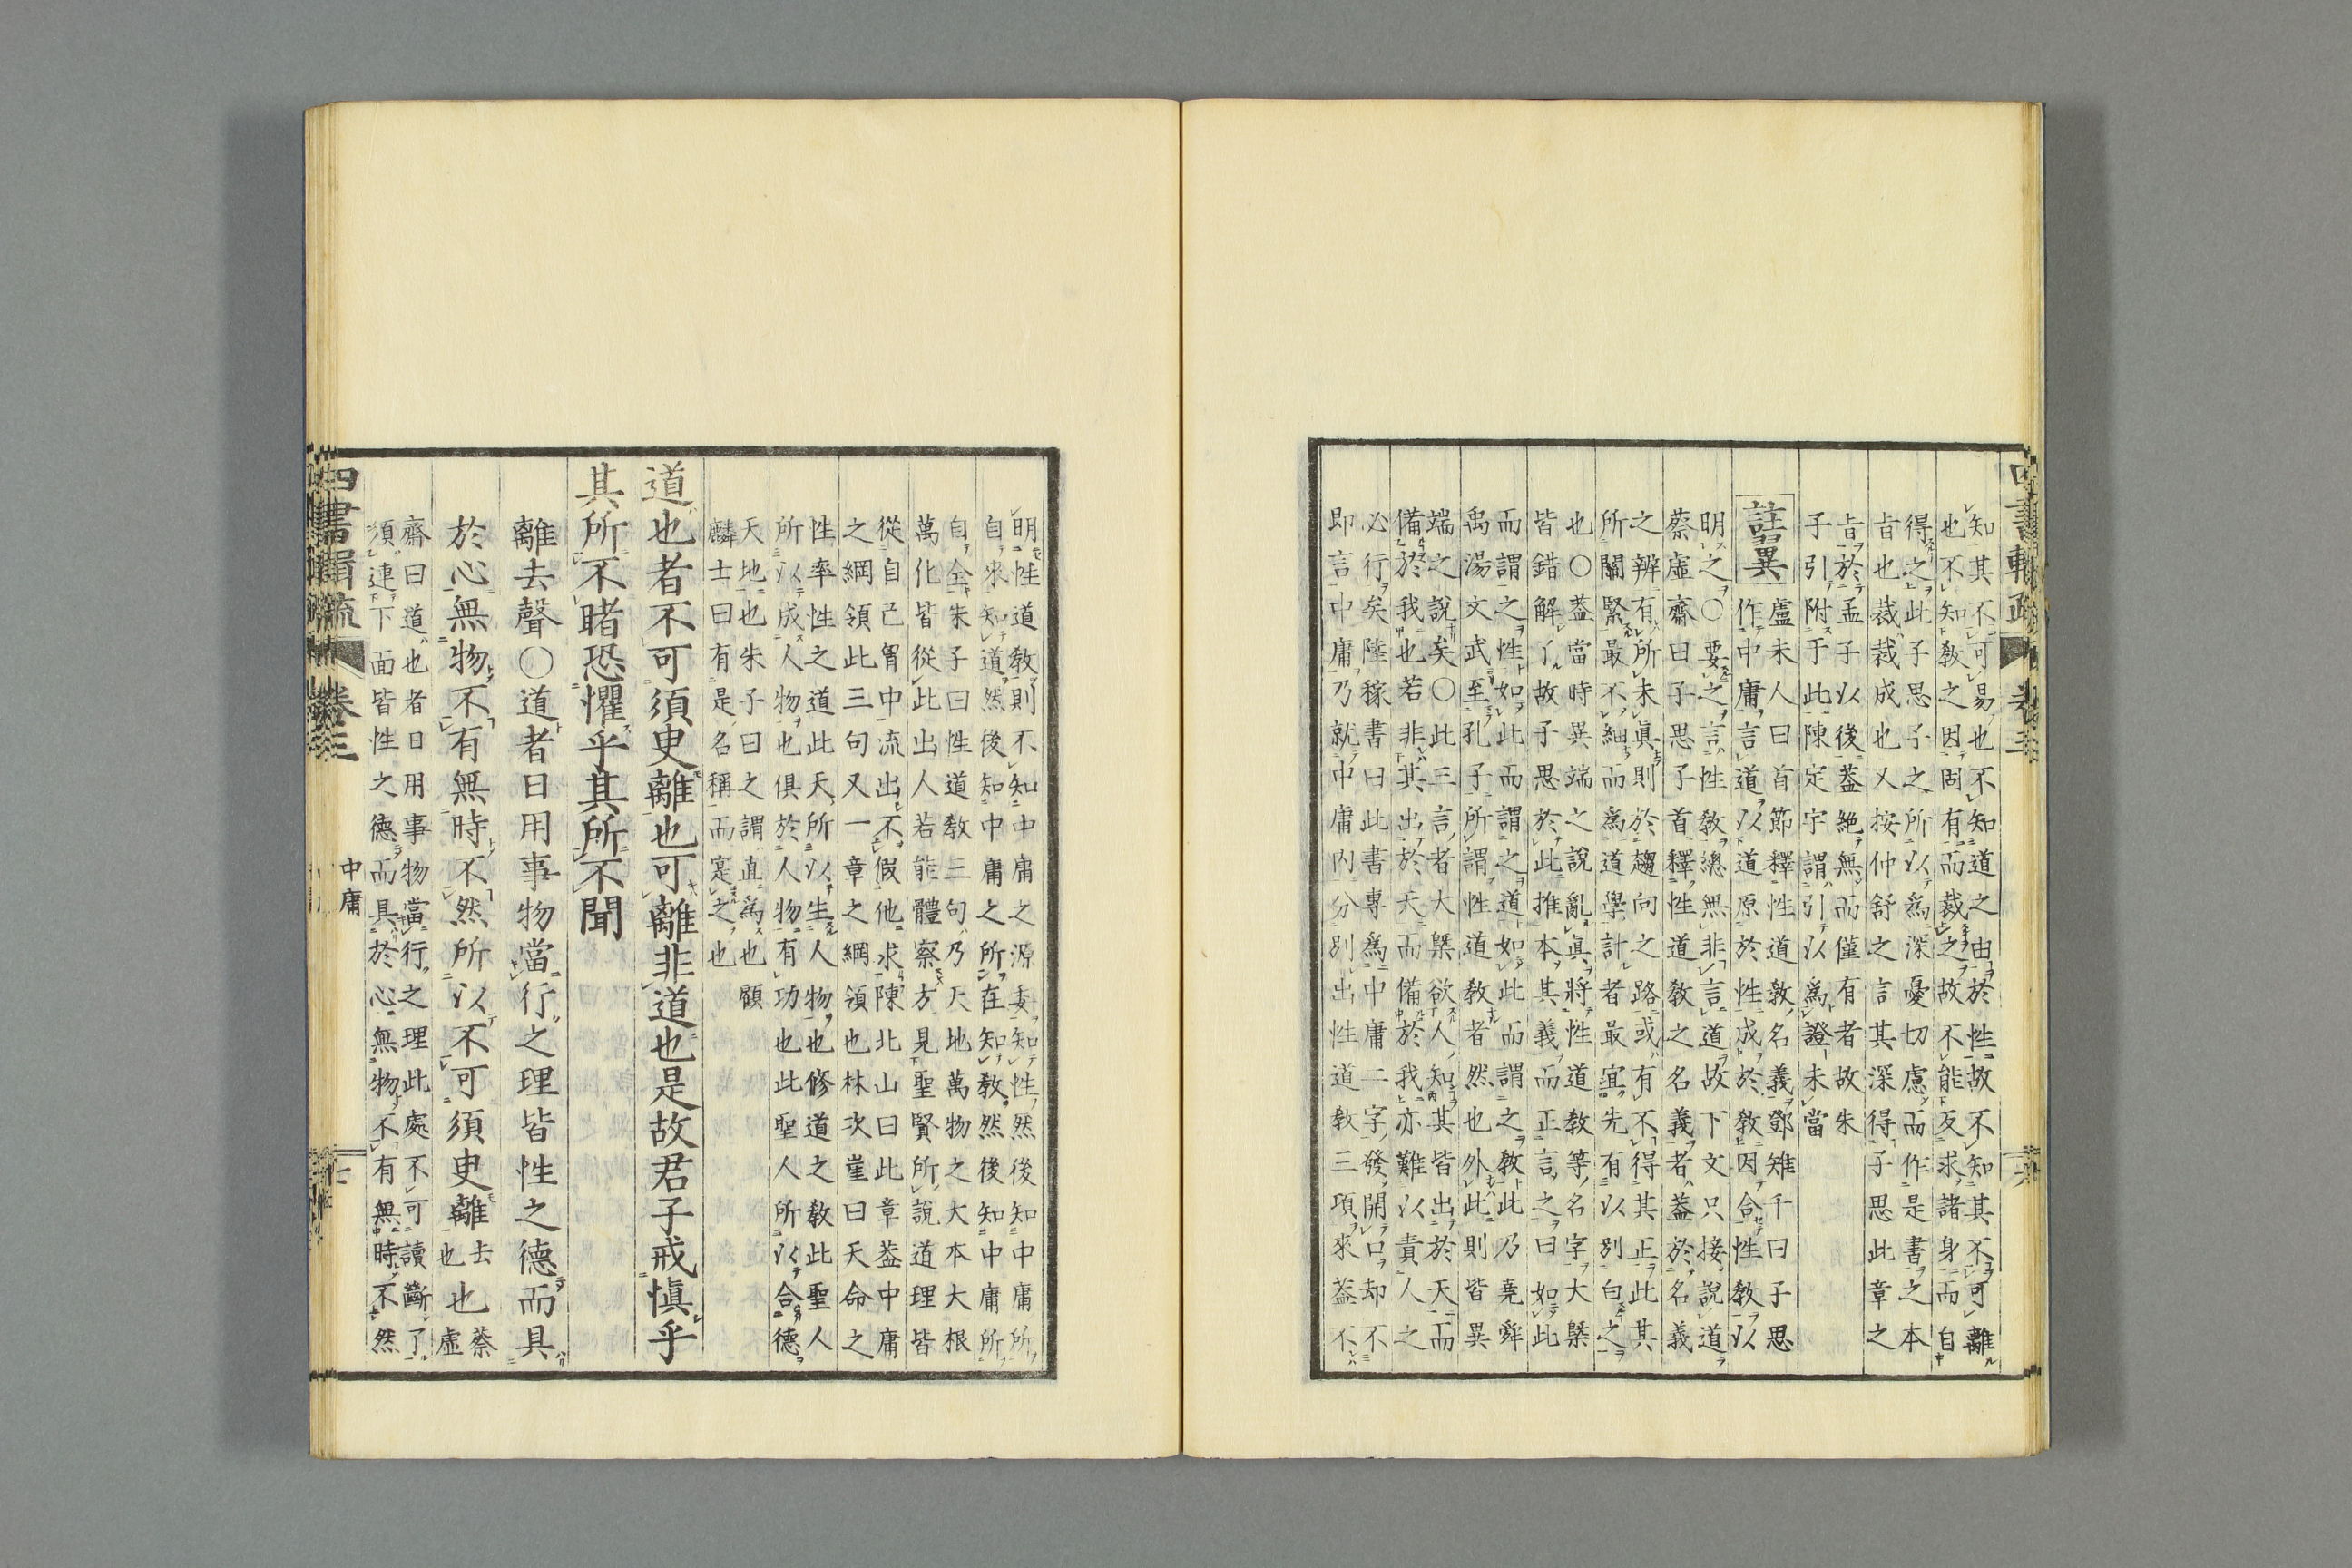 知其不可易也不知道之由於性故不知其不可離
也不知敎之因固有而裁之故不能反求諸身而自
得之此子思子之所以爲深憂切慮而作是書之本
㫖也裁裁成也又按仲舒之言其深得子思此章之
㫖於孟子以後蓋絶無而僅有者故朱
子引附于此陳定宇謂引以爲證未當
註異
盧未人曰首節釋性道敎名義鄧雉千曰子思
作中庸言道以道原於性成於敎因合性敎以
明之〇要之言性敎總無非言道故下文只接說道
蔡虛齋曰子思子首釋性道敎之名義者蓋於名義
之辨有所未眞則於趨向之路或有不得其正此其
所關緊最不細而爲道學計者最宜先有以別白之
也〇蓋當時異端之說亂眞將性道敎等名字大槩
皆錯解了故子思於此推本其義而正言之曰如此
而謂之性如此而謂之道如此而謂之敎此乃堯舜
禹湯文武至孔子所謂性道敎者然也外此則皆異
端之說矣〇此三言者大槩欲人知其皆出於天而
備於我也若非其出於天而備於我亦難以責人之
必行矣陸稼書曰此書專爲中庸二字發開口却不
即言中庸乃就中庸內分別出性道敎三項來蓋不
明性道敎則不知中庸之源委知性然後知中庸所
自來知道然後知中庸之所在知敎然後知中庸所
自全朱子曰性道敎三句乃天地萬物之大本大根
萬化皆從此出人若能體察方見聖賢所說道理皆
從自己胷中流出不假他求陳北山曰此章蓋中庸
之綱領此三句又一章之綱領也林次崖曰天命之
性率性之道此天所以生人物也修道之敎此聖人
所以成人物也俱於人物有功也此聖人所以合德
天地也朱子曰之謂直爲也顧
麟士曰有是名稱而寔之也
道也者不可須臾離也可離非道也是故君子戒愼乎
其所不睹恐懼乎其所不聞
離去聲〇道者日用事物當行之理皆性之德而具
於心無物不有無時不然所以不可須臾離也
去也
蔡虛
齋曰道也者日用事物當行之理此處不可讀斷了
須連下面皆性之德而具於心無物不有無時不然
四書輯疏
卷三
中庸